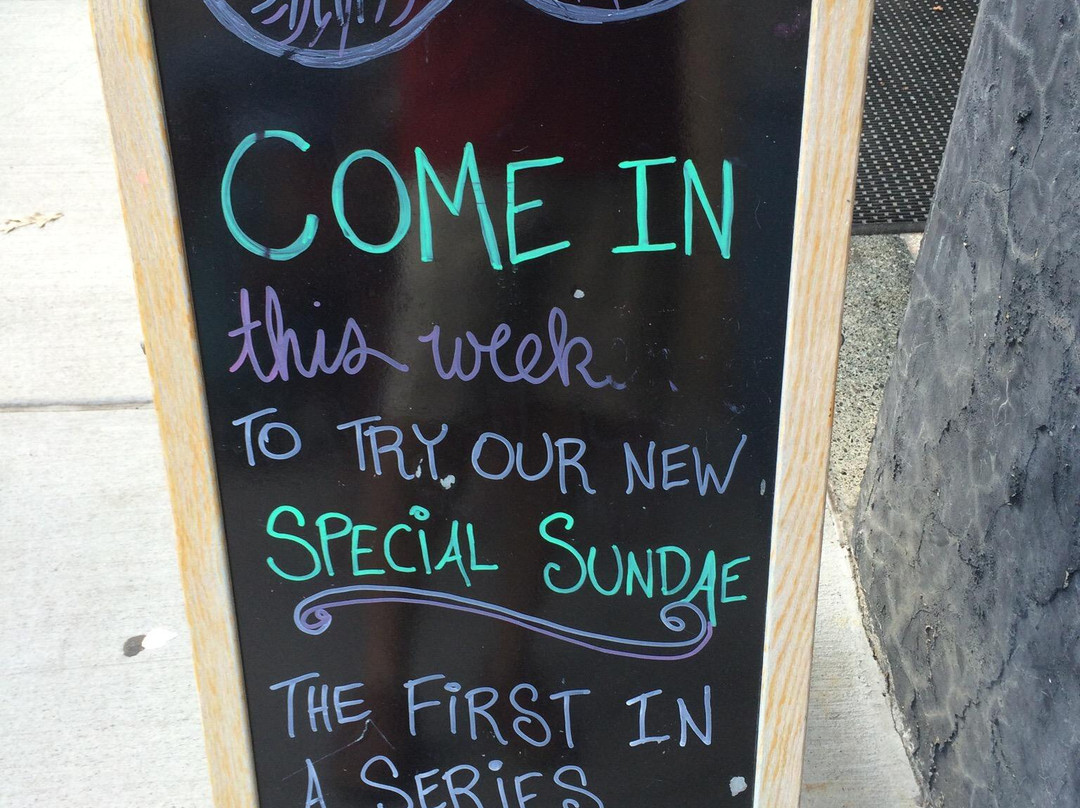 COME IN
this week
TO TRY OUR NEW
SPECIAL SUNDAE
THE FIRST IN
A SERIES